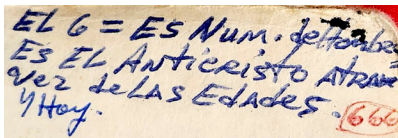 EL 6 = Es Num. de Hombre
Es EL Anticristo ATRAve
vez de LAS Edades.
y Hoy.
666